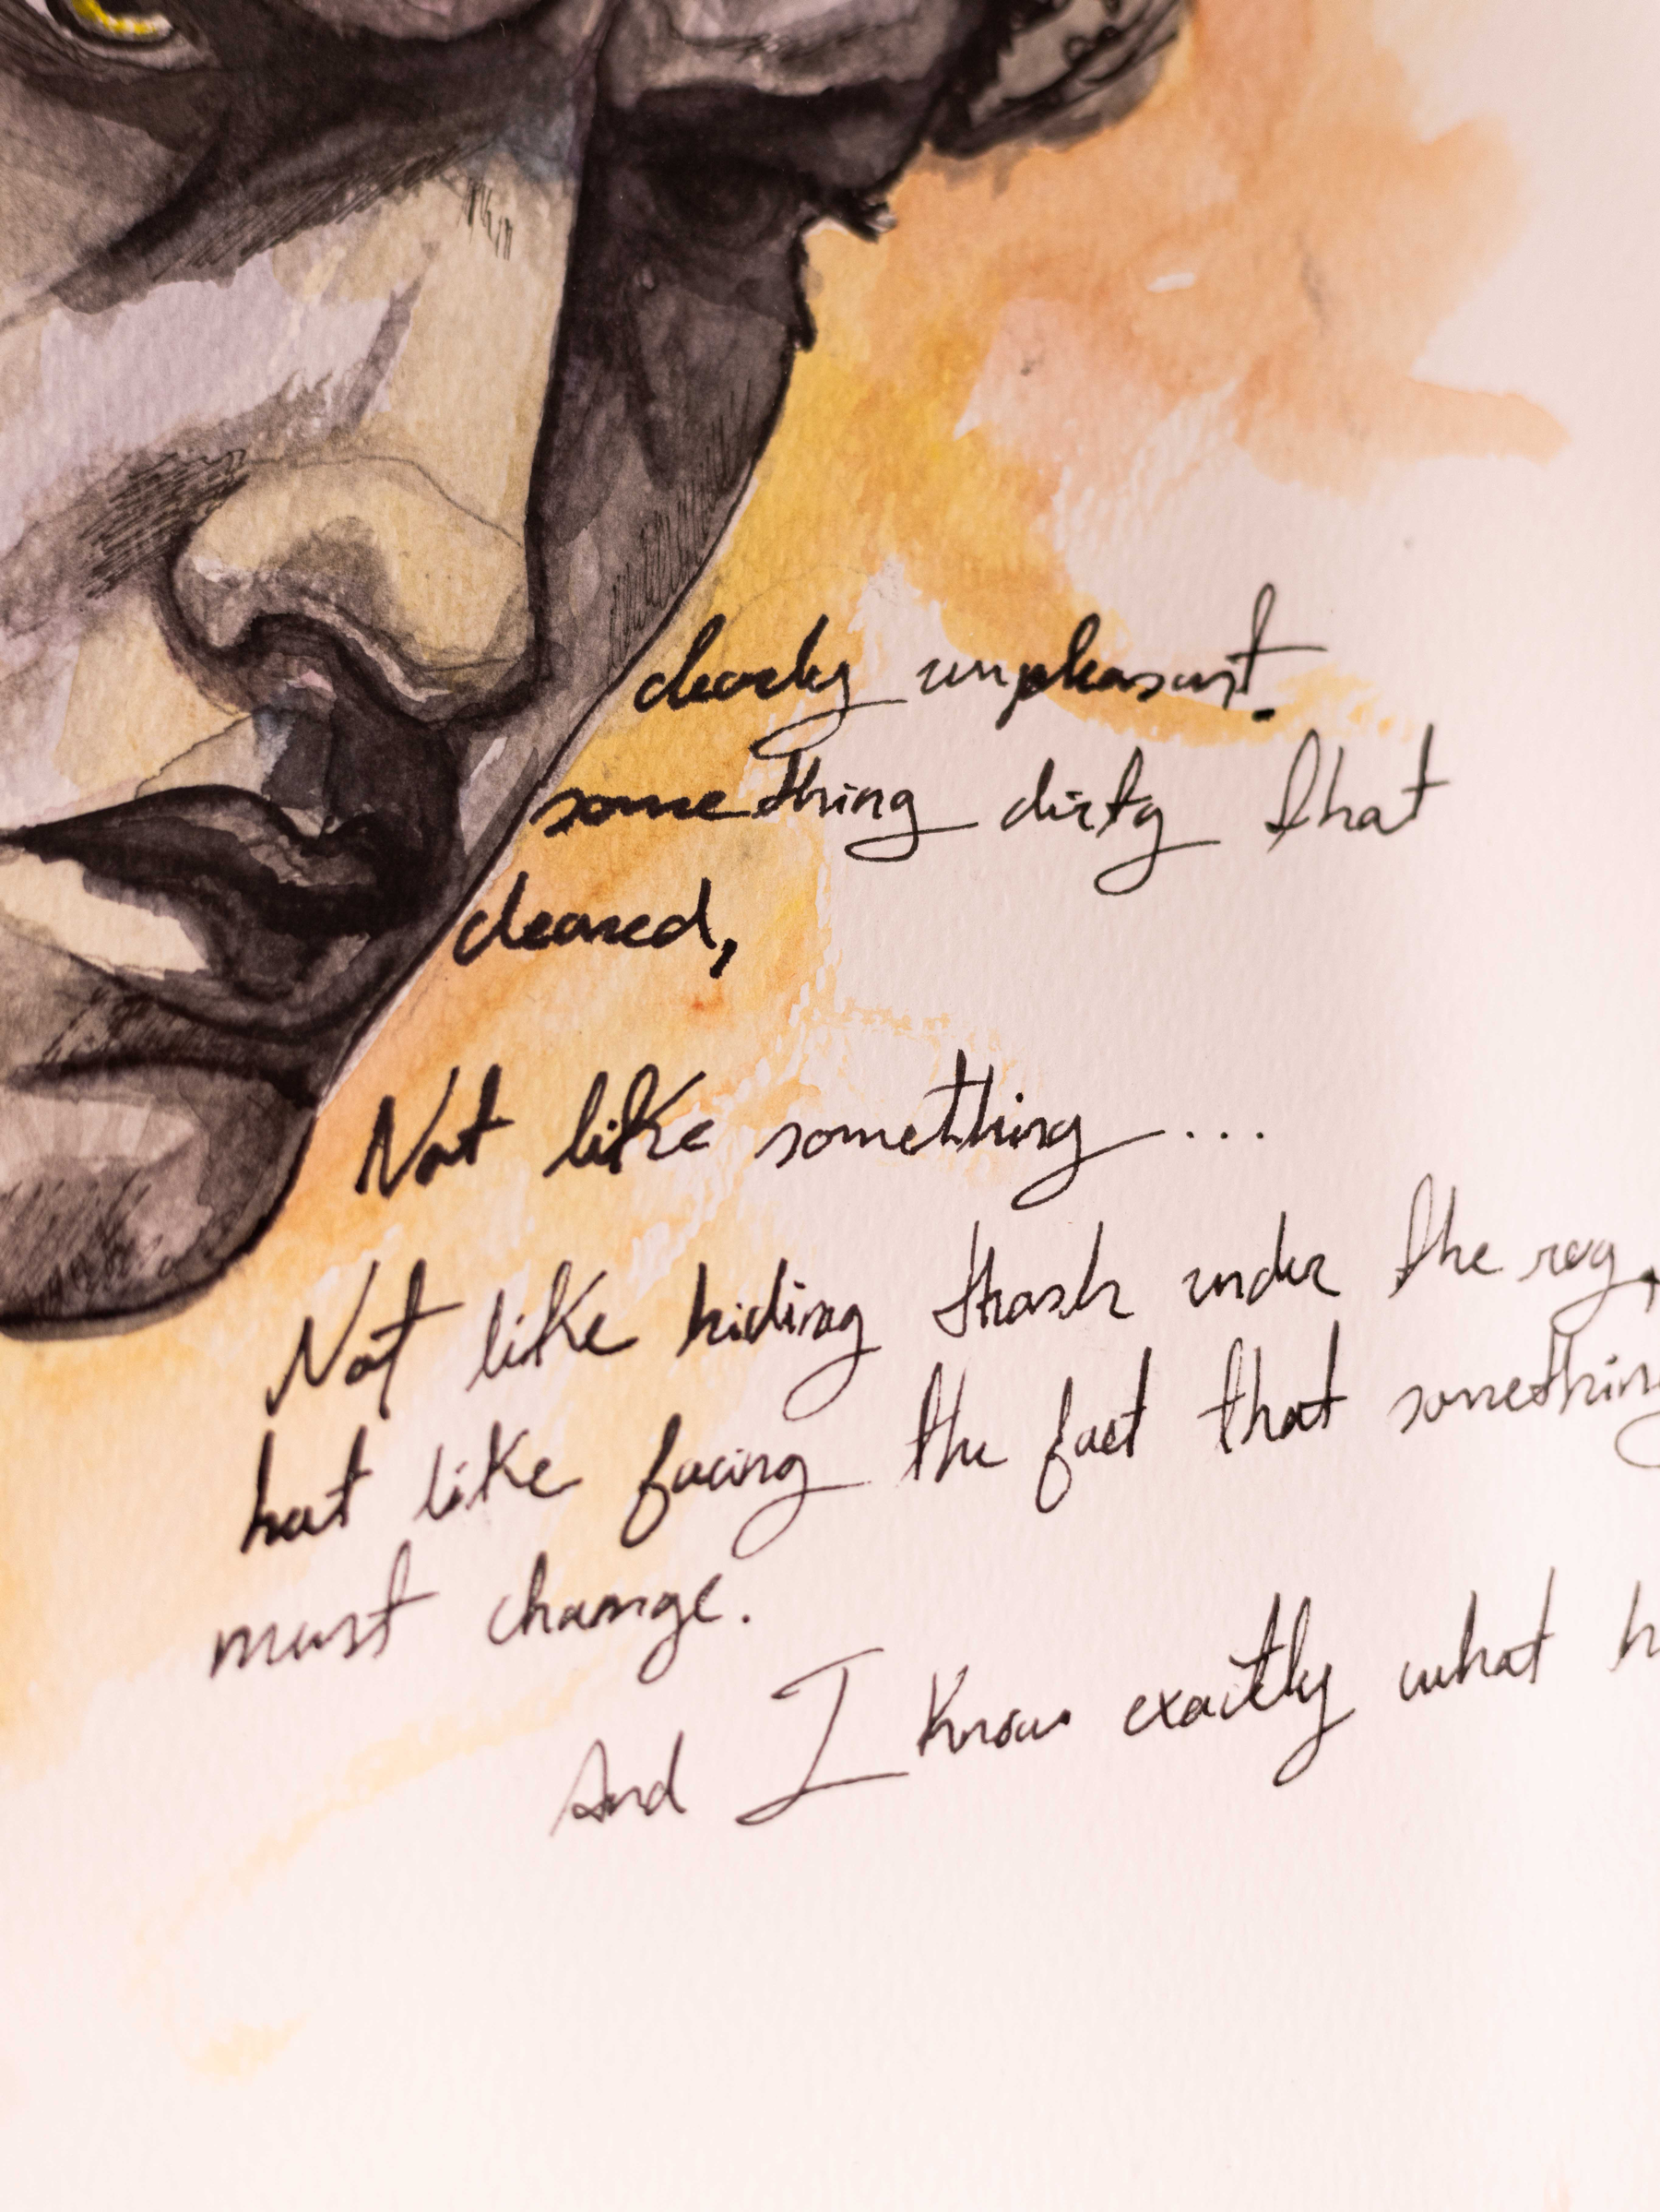 clearly unpleasant.
something dirty that
cleared,
Not like something...
Not like hiding thrash under the rug,
but like facing the fact that something
must change.
And I know exactly what